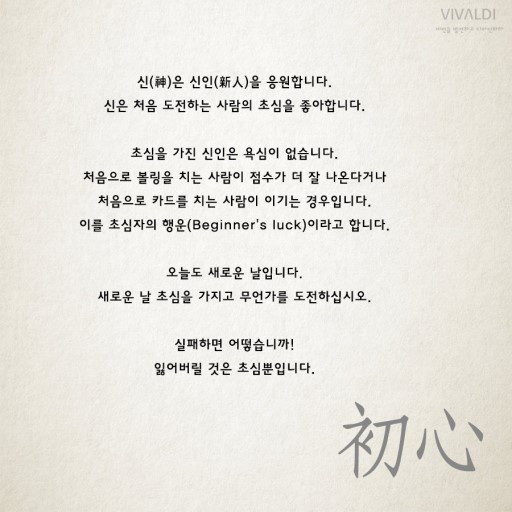 VIVALDI
신(神)은 신인(新人)을 응원합니다.
신은 처음 도전하는 사람의 초심을 좋아합니다.
초심을 가진 신인은 욕심이 없습니다.
처음으로 볼링을 치는 사람이 점수가 더 잘 나온다거나
처음으로 카드를 치는 사람이 이기는 경우입니다.
이를 초심자의 행운(Beginner's luck)이라고 합니다.
오늘도 새로운 날입니다.
새로운 날 초심을 가지고 무언가를 도전하십시오.
실패하면 어떻습니까!
잃어버릴 것은 초심뿐입니다.
初心